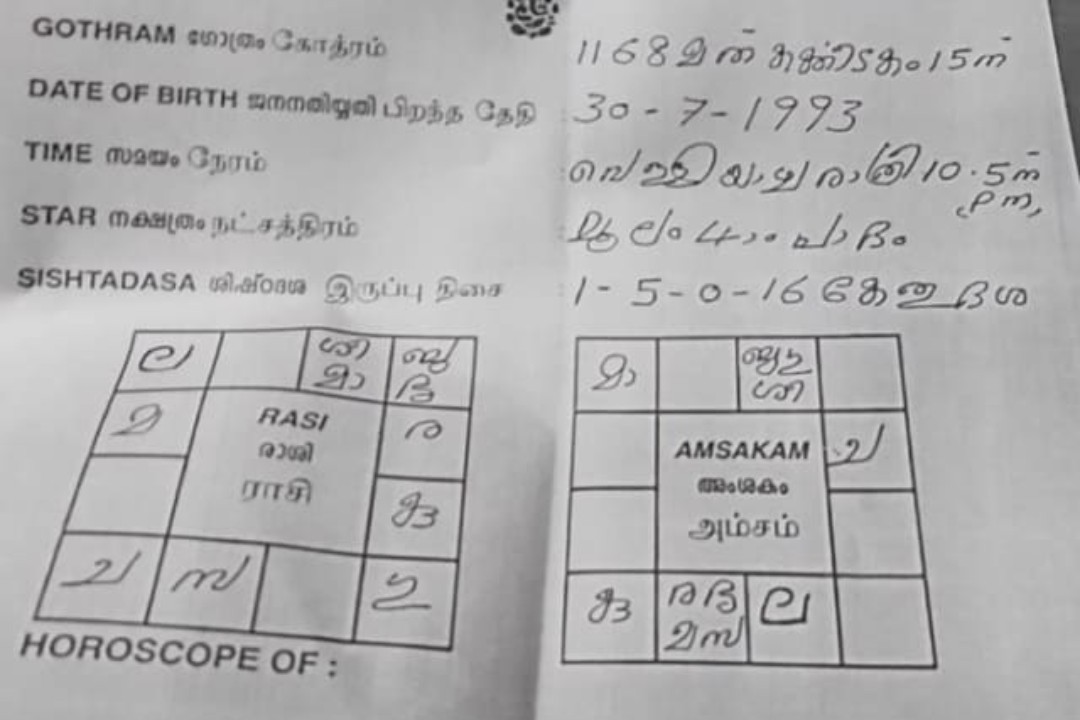 GOTHRAM ഗോത്രം கோத்ரம்
1168 മത് കർക്കിടകം 15ന്
DATE OF BIRTH ജനനതിയ്യതി பிறந்த தேதி : 30-7-1993
TIME സമയം நேரம் : വെള്ളിയാഴ്ച രാത്രി 10.5ന് pm,
STAR നക്ഷത്രം நட்சத்திரம் : മൂലം 4ാം പാദം
SISHTADASA ശിഷ്ടദശ இருப்பு திசை : 1-5-0-16 കേതു ദശ
ല
ശി
മാ
ബു
മ
RASI
രാശി
ராசி
ര
ച
സ
മാ
ശി
AMSAKAM
അംശകം
அம்சம்
ച
ര
സ
ല
HOROSCOPE OF :